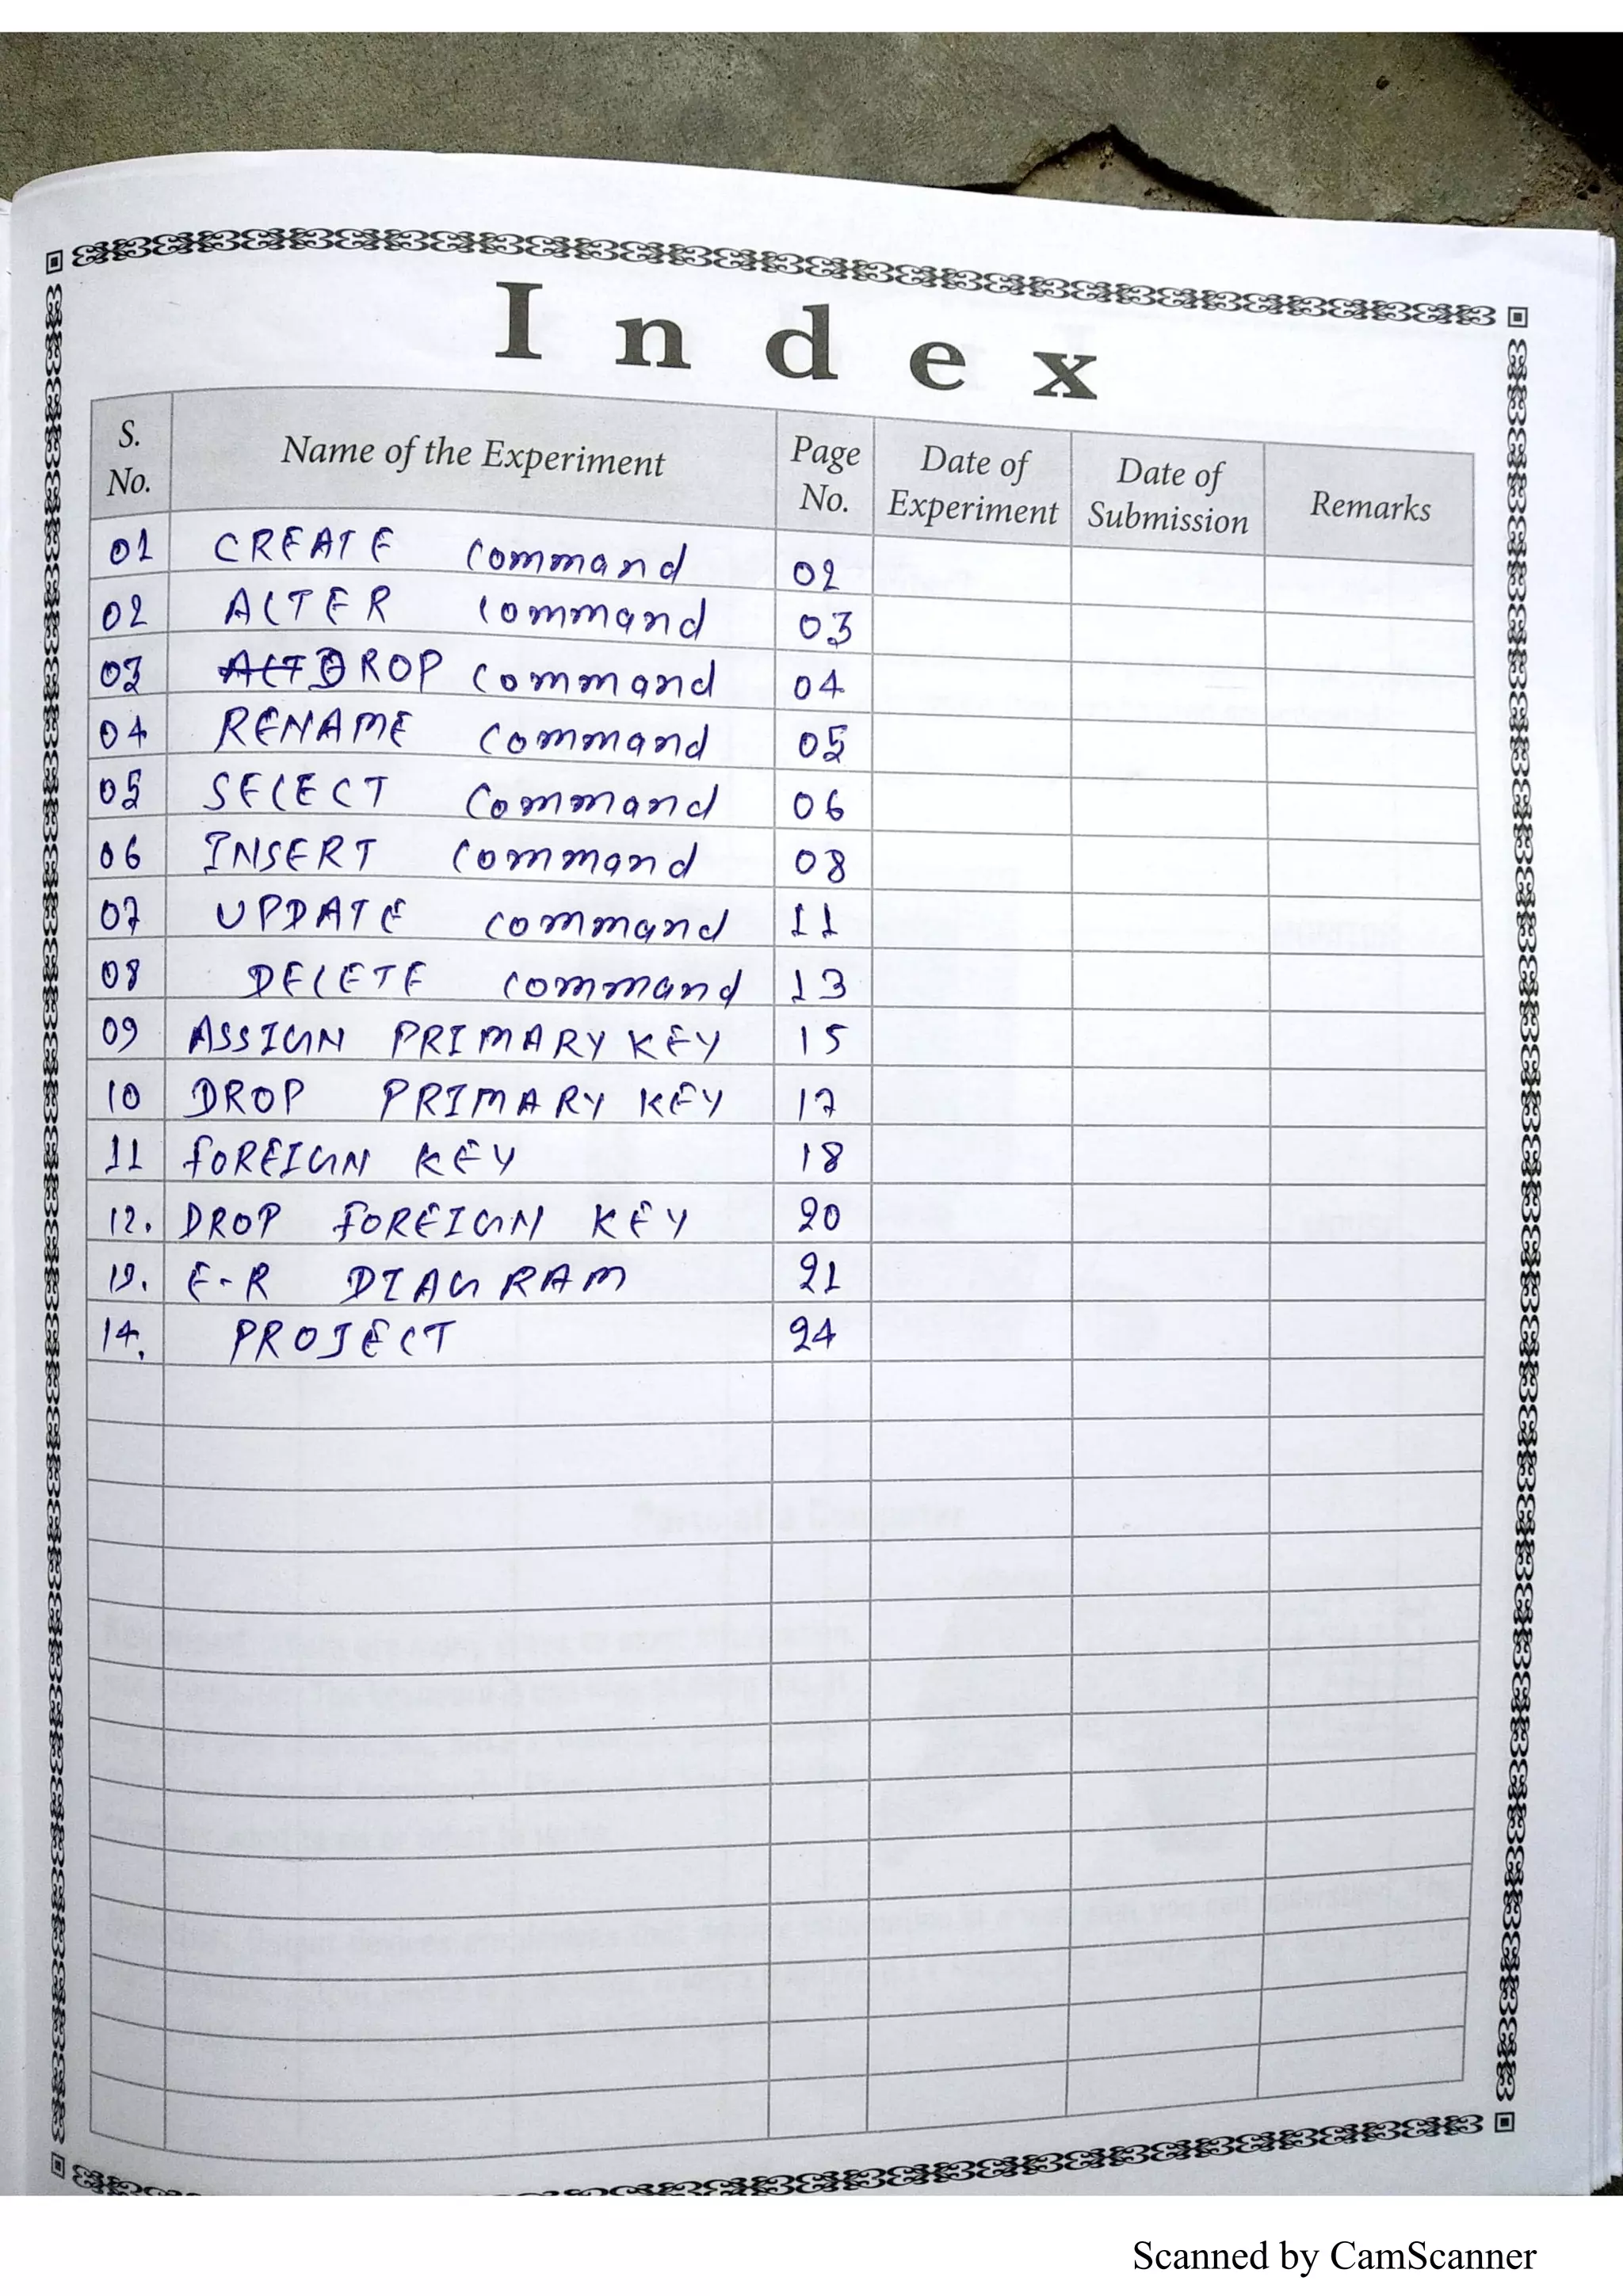 Index
S. No. Name of the Experiment Page No. Date of Experiment Date of Submission Remarks
01 CREATE Command 02
02 ALTER Command 03
03 ALT DROP Command 04
04 RENAME Command 05
05 SELECT Command 06
06 INSERT Command 08
07 UPDATE Command 11
08 DELETE Command 13
09 ASSIGN PRIMARY KEY 15
10 DROP PRIMARY KEY 17
11 FOREIGN KEY 18
12. DROP FOREIGN KEY 20
13. E-R DIAGRAM 21
14. PROJECT 24
Scanned by CamScanner